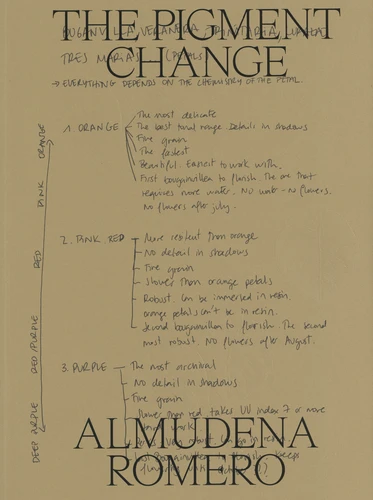 THE PIGMENT
CHANGE
BUGANVILLA, VERANERA, TRINITARIA,
TRES MARIAS (PETALS)
→ EVERYTHING DEPENDS ON THE CHEMISTRY OF THE PETAL
ORANGE
PINK
RED
RED/PURPLE
DEEP PURPLE
1 ORANGE
The most delicate
The best tonal range. Details in shadows
Fine grain
The fastest
Beautiful. Easiest to work with.
First bougainvillea to flourish. The one that
requires more water. No water - no flowers.
No flowers after july.
2. PINK RED
More resilient than orange
No detail in shadows
Fine grain
Slower than orange petals
Robust. Can be immersed in resin.
orange petals can't be in resin.
Second bougainvillea to flourish. The second
most robust. No flowers after August.
3. PURPLE
The most archival
No detail in shadows
Fine grain
Slower than red, takes UV index 7 or more
to work
ALMUDENA
ROMERO